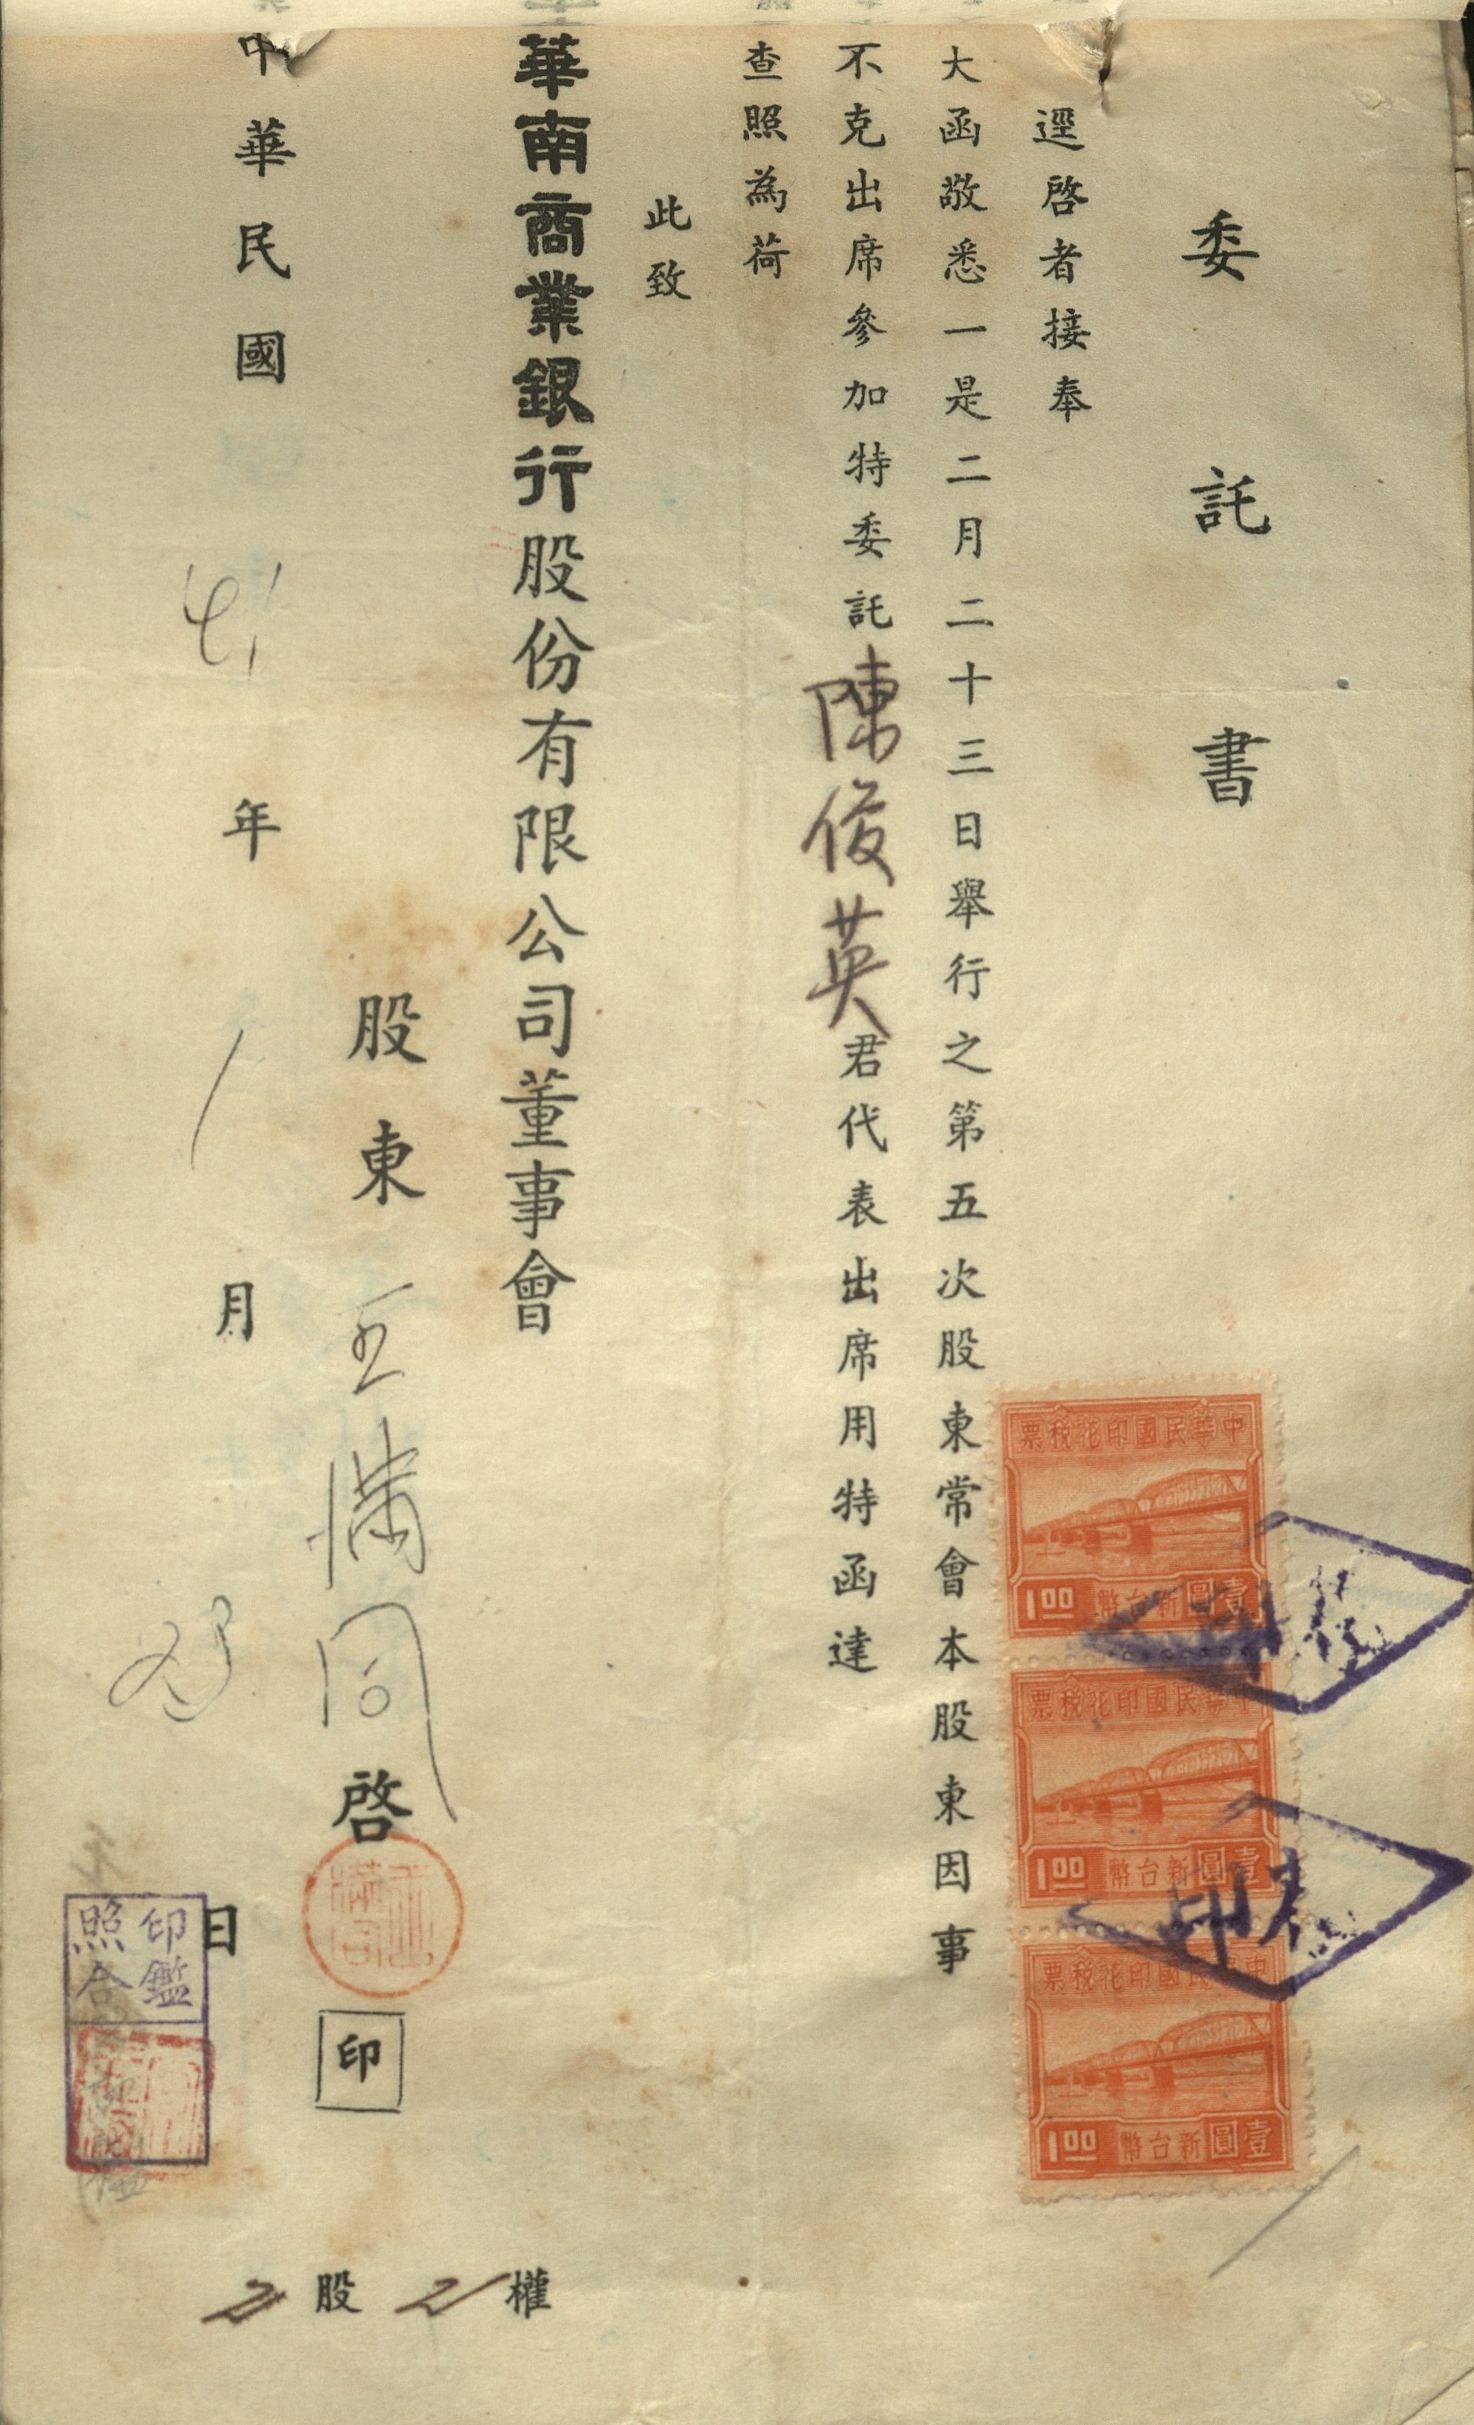 委託書
逕啓者接奉
大函敬悉一是二月二十三日舉行之第五次股東常會本股東因事
不克出席參加特委託陳俊英君代表出席用特函達
查照為荷
此致
華南商業銀行股份有限公司董事會
股東 啓
印
中華民國 年 月 日
印鑑
照合
股 權
中華民國印花稅票
壹圓新台幣 1.00
中華民國印花稅票
壹圓新台幣 1.00
中華民國印花稅票
壹圓新台幣 1.00